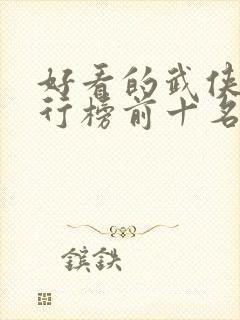 好看的武侠
行榜前十名
镔鉄